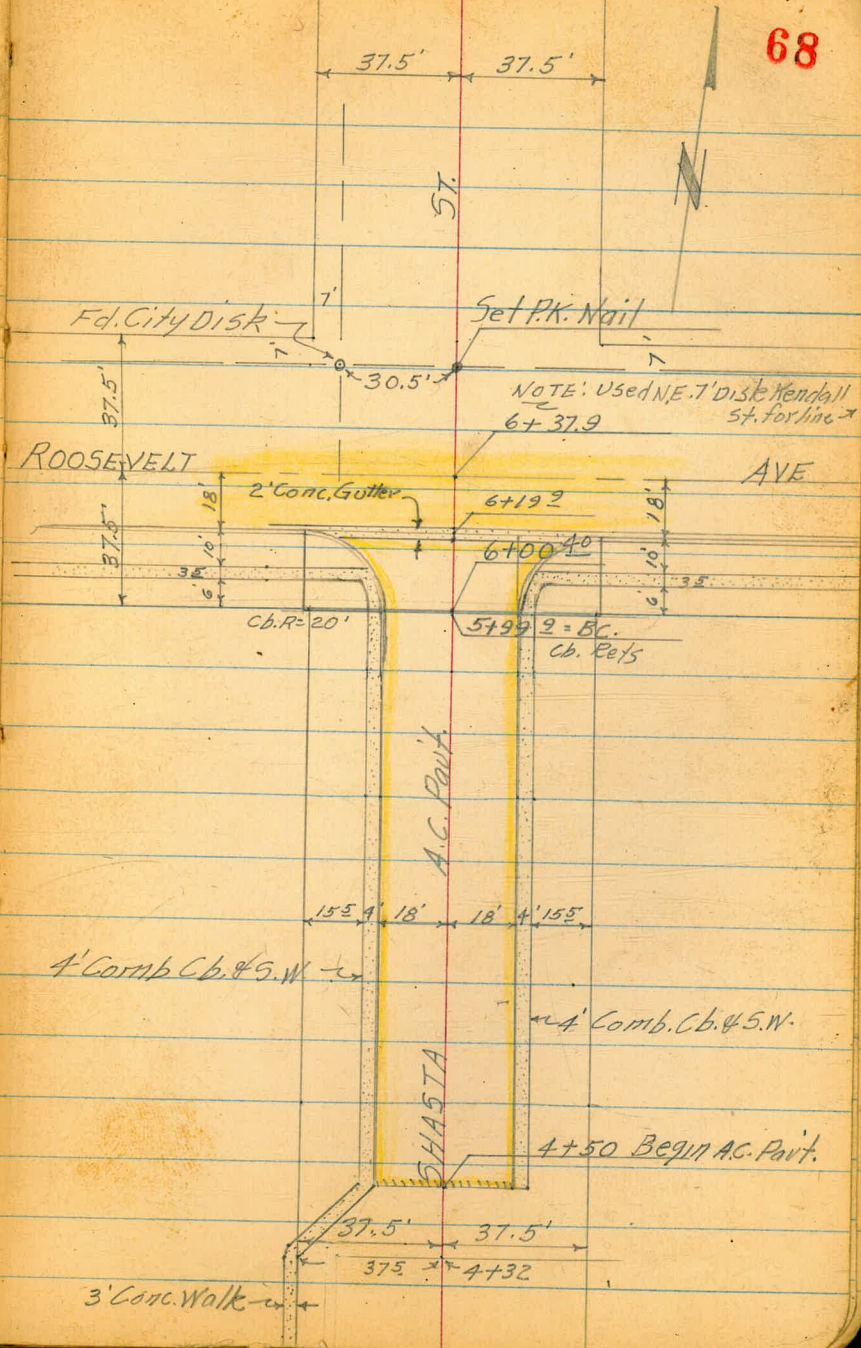 68
37.5' 37.5'
N
ST.
7'
Fd. City Disk
Set P.K. Nail
7'
7'
30.5'
37.5'
NOTE: Used N.E. 7' Disk Kendall
St. for line
6+37.9
ROOSEVELT
AVE
18'
2' Conc. Gutter
6+19 9
18'
37.5'
10'
6+00 40
10'
35
35
6'
6'
Cb. R=20'
5+99 9 = BC.
Cb. Rets
A.C. Pav't.
15 5 4' 18' 18' 4' 15 5
4' Comb Cb. & S.W.
4' Comb. Cb. & S.W.
SHASTA
4+50 Begin A.C. Pav't.
37.5' 37.5'
37 5 4+32
3' Conc. Walk